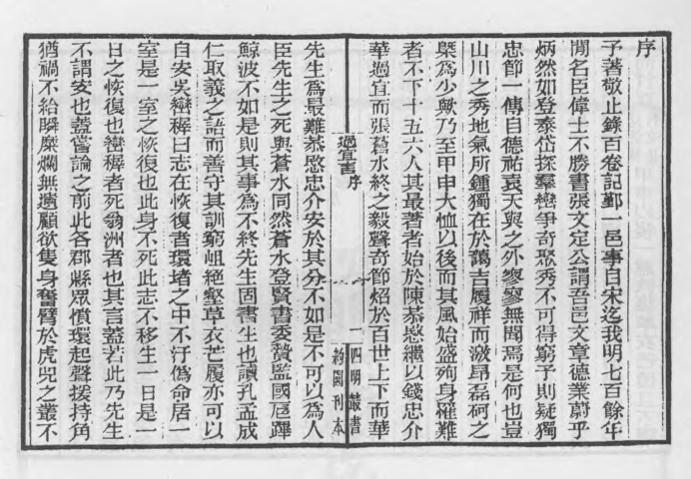 序
予著敬止錄百卷記鄞一邑事自宋迄我明七百餘年
閒名臣偉士不勝書張文定公謂吾邑文章德業蔚乎
炳然如登泰岱探羣巒爭奇聚秀不可得窮予則疑獨
忠節一傳自德祐袁天與之外寥寥無聞焉是何也豈
山川之秀地氣所鍾獨在於藹吉履祥而激昂磊砢之
槩爲少歟乃至甲申大恤以後而其風始盛殉身罹難
者不下十五六人其最著者始於陳恭愍繼以錢忠介
華過宜而張蒼水終之毅聲奇節炤於百世上下而華
過宜言 序
一
四明叢書
約園刊本
先生爲最難恭愍忠介安於其分不如是不可以爲人
臣先生之死與蒼水同然蒼水登賢書委贄監國扈蹕
鯨波不如是則其事爲不終先生固書生也讀孔孟成
仁取義之語而善守其訓窮岨絕壑草衣芒履亦可以
自安吳巒穉曰志在恢復者環堵之中不汙僞命居一
室是一室之恢復也此身不死此志不移生一日是一
日之恢復也巒穉者死翁洲者也其言蓋若此乃先生
不謂安也蓋嘗論之前此各郡縣眾憤環起聲援持角
猶禍不給瞬糜爛無遺顧欲隻身奮臂於虎兕之叢不